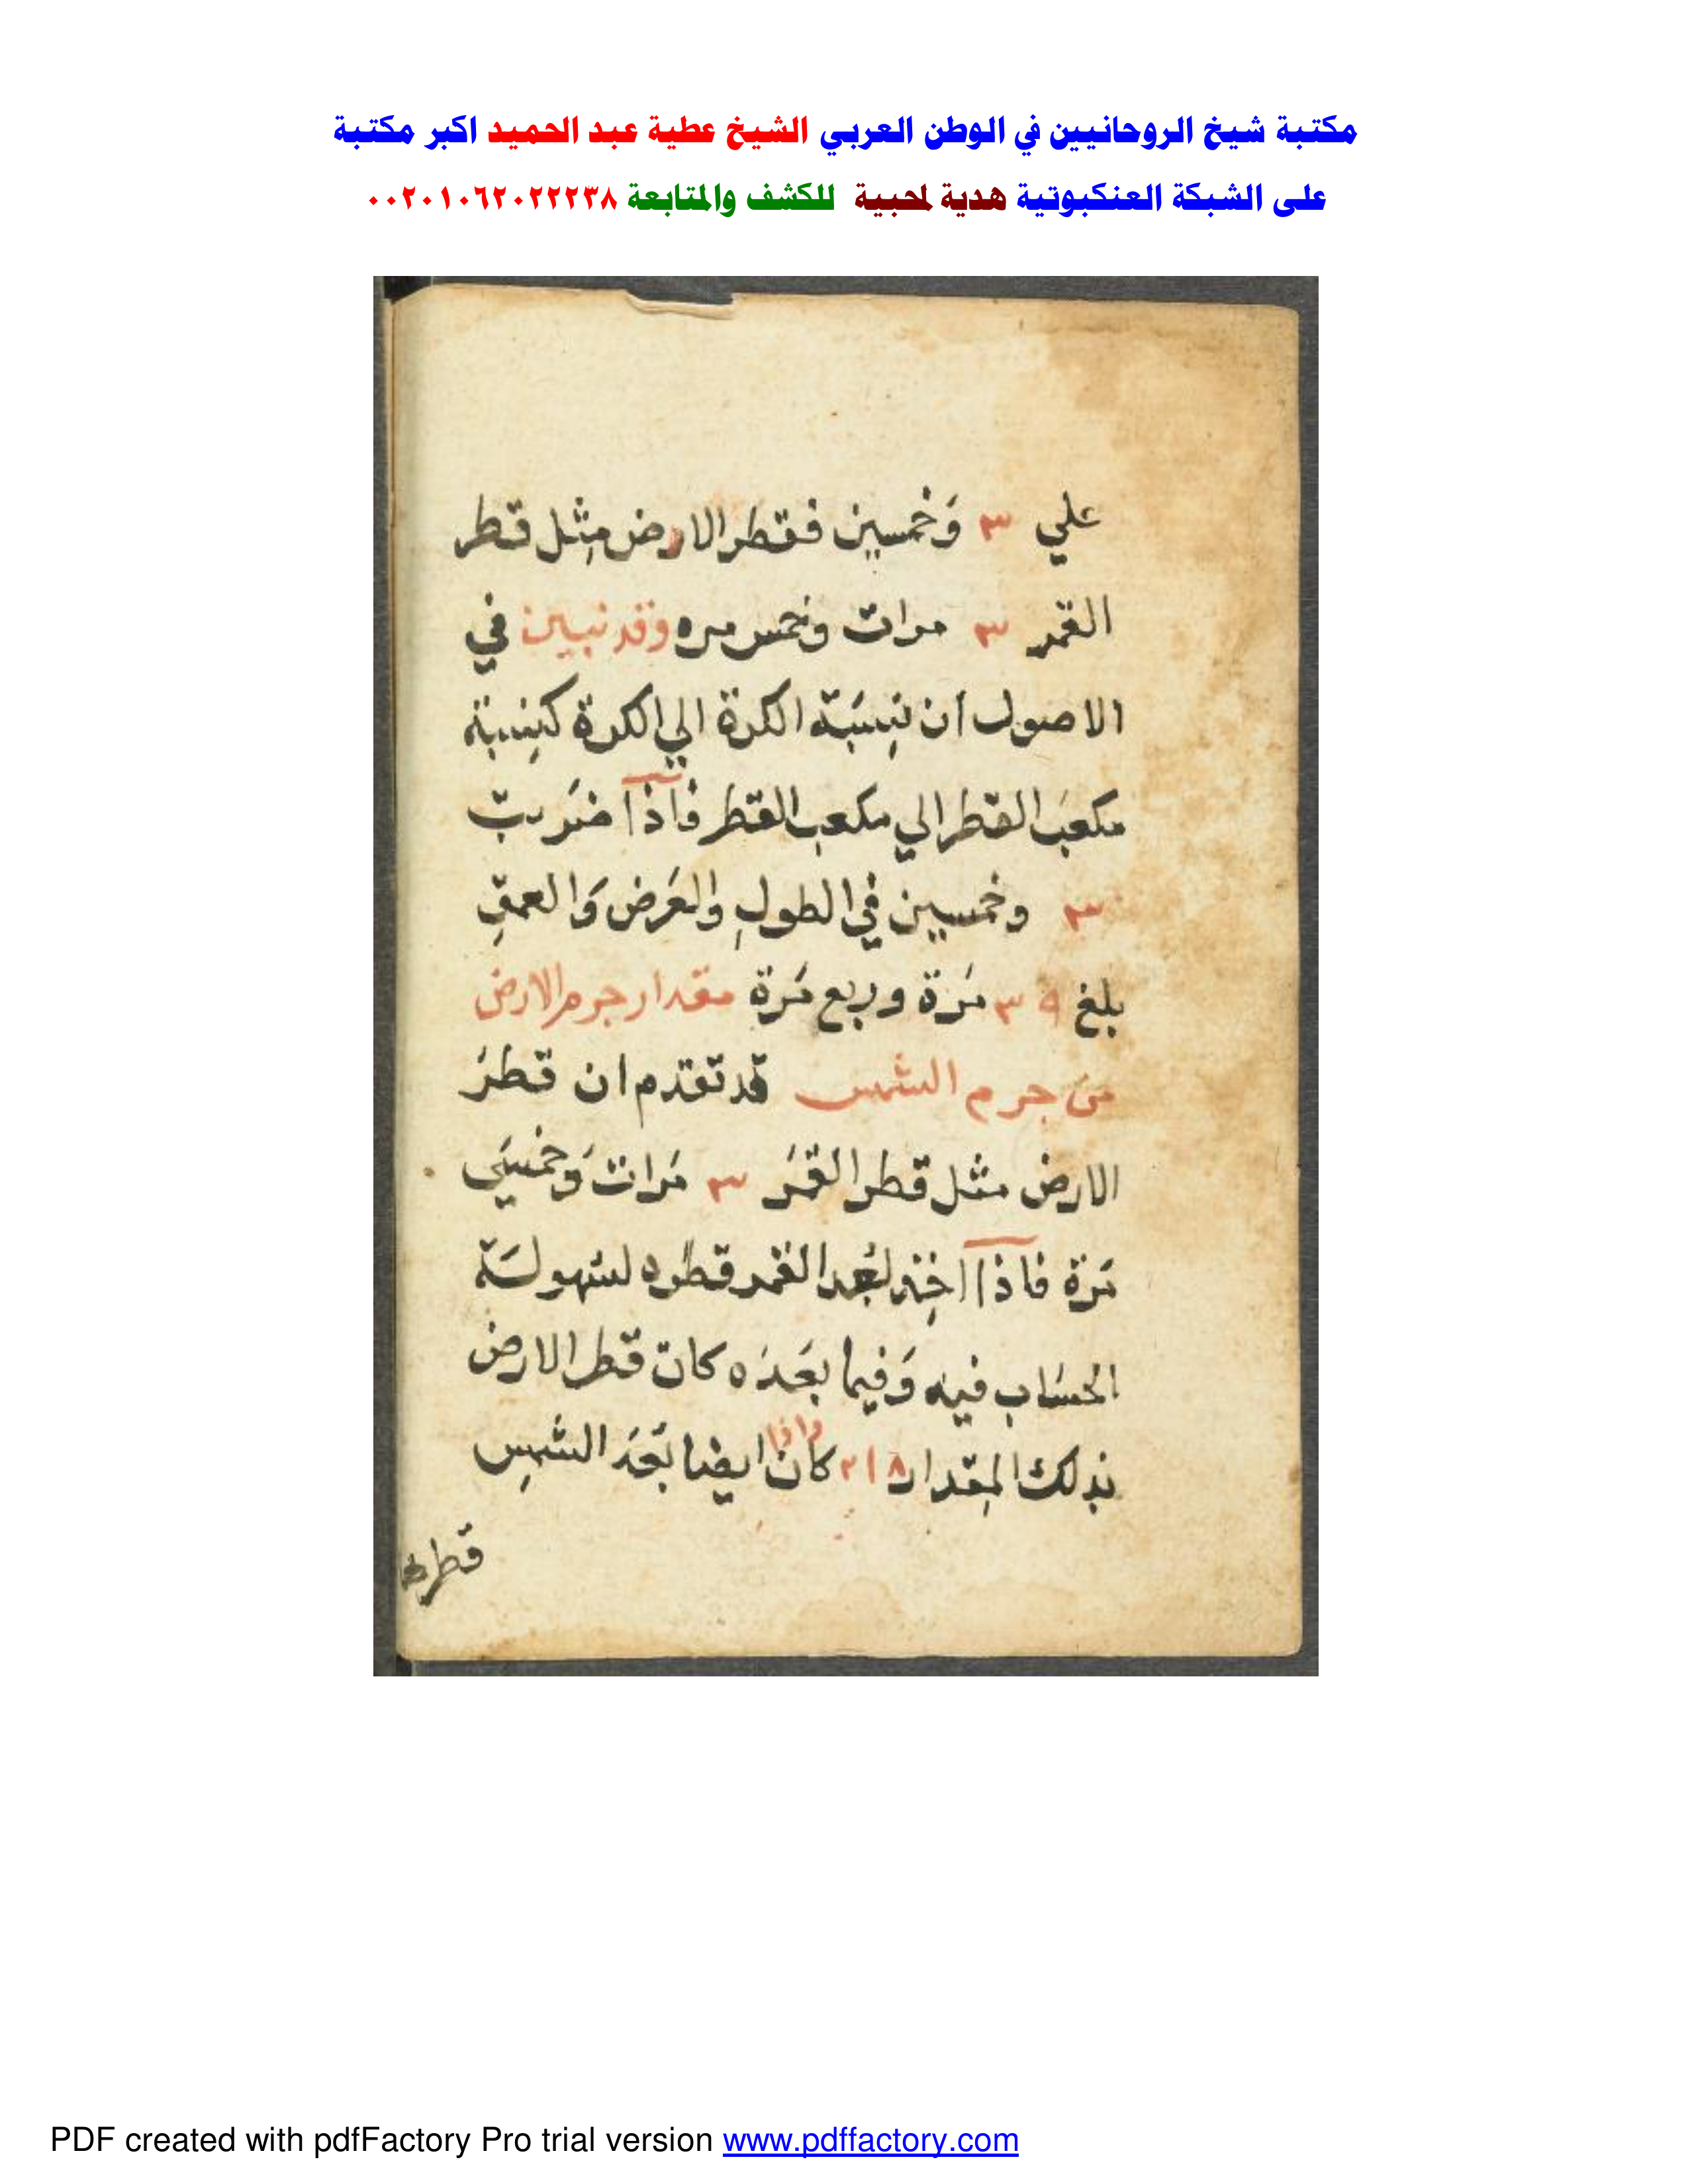 مكتبة شيخ الروحانيين في الوطن العربي الشيخ عطية عبد الحميد اكبر مكتبة
على الشبكة العنكبوتية هدية لمحبية للكشف والمتابعة ٠٠٢٠١٠٦٢٠٢٢٢٣٨
علي ٣ وَخمسين فقطر الارض مِثل قطر
القمر ٣ مرات وخمس مره وقد تبين في
الاصول أن نِسبَة الكرة الي الكرة كنِسبة
مكعبَ القطر الي مكعب القطر فاذا ضَربت
٣ وخمسين في الطولِ والعَرض وَالعمقِ
بلغ ٣٩ مَرة وربع مَرة مقدار جرم الارض
من جرم الشمس قد تقدم ان قطرَ
الارض مثل قطر القمَر ٣ مَرات وَخمسَي
مَرة فاذا اخِذ لبُعد القمر قطره لسهولَة
الحسَاب فيه وَفيما بعَدَه كان قطر الارض
بذلك المِقدار ٢١٨ واذا كان ايضا بُعَد الشمسِ
قطره
PDF created with pdfFactory Pro trial version www.pdffactory.com